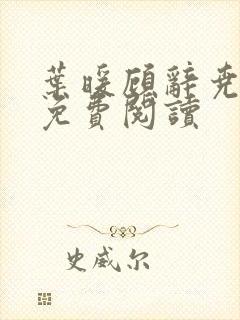 葉暖顧辭堯
免費閱讀
史威尔